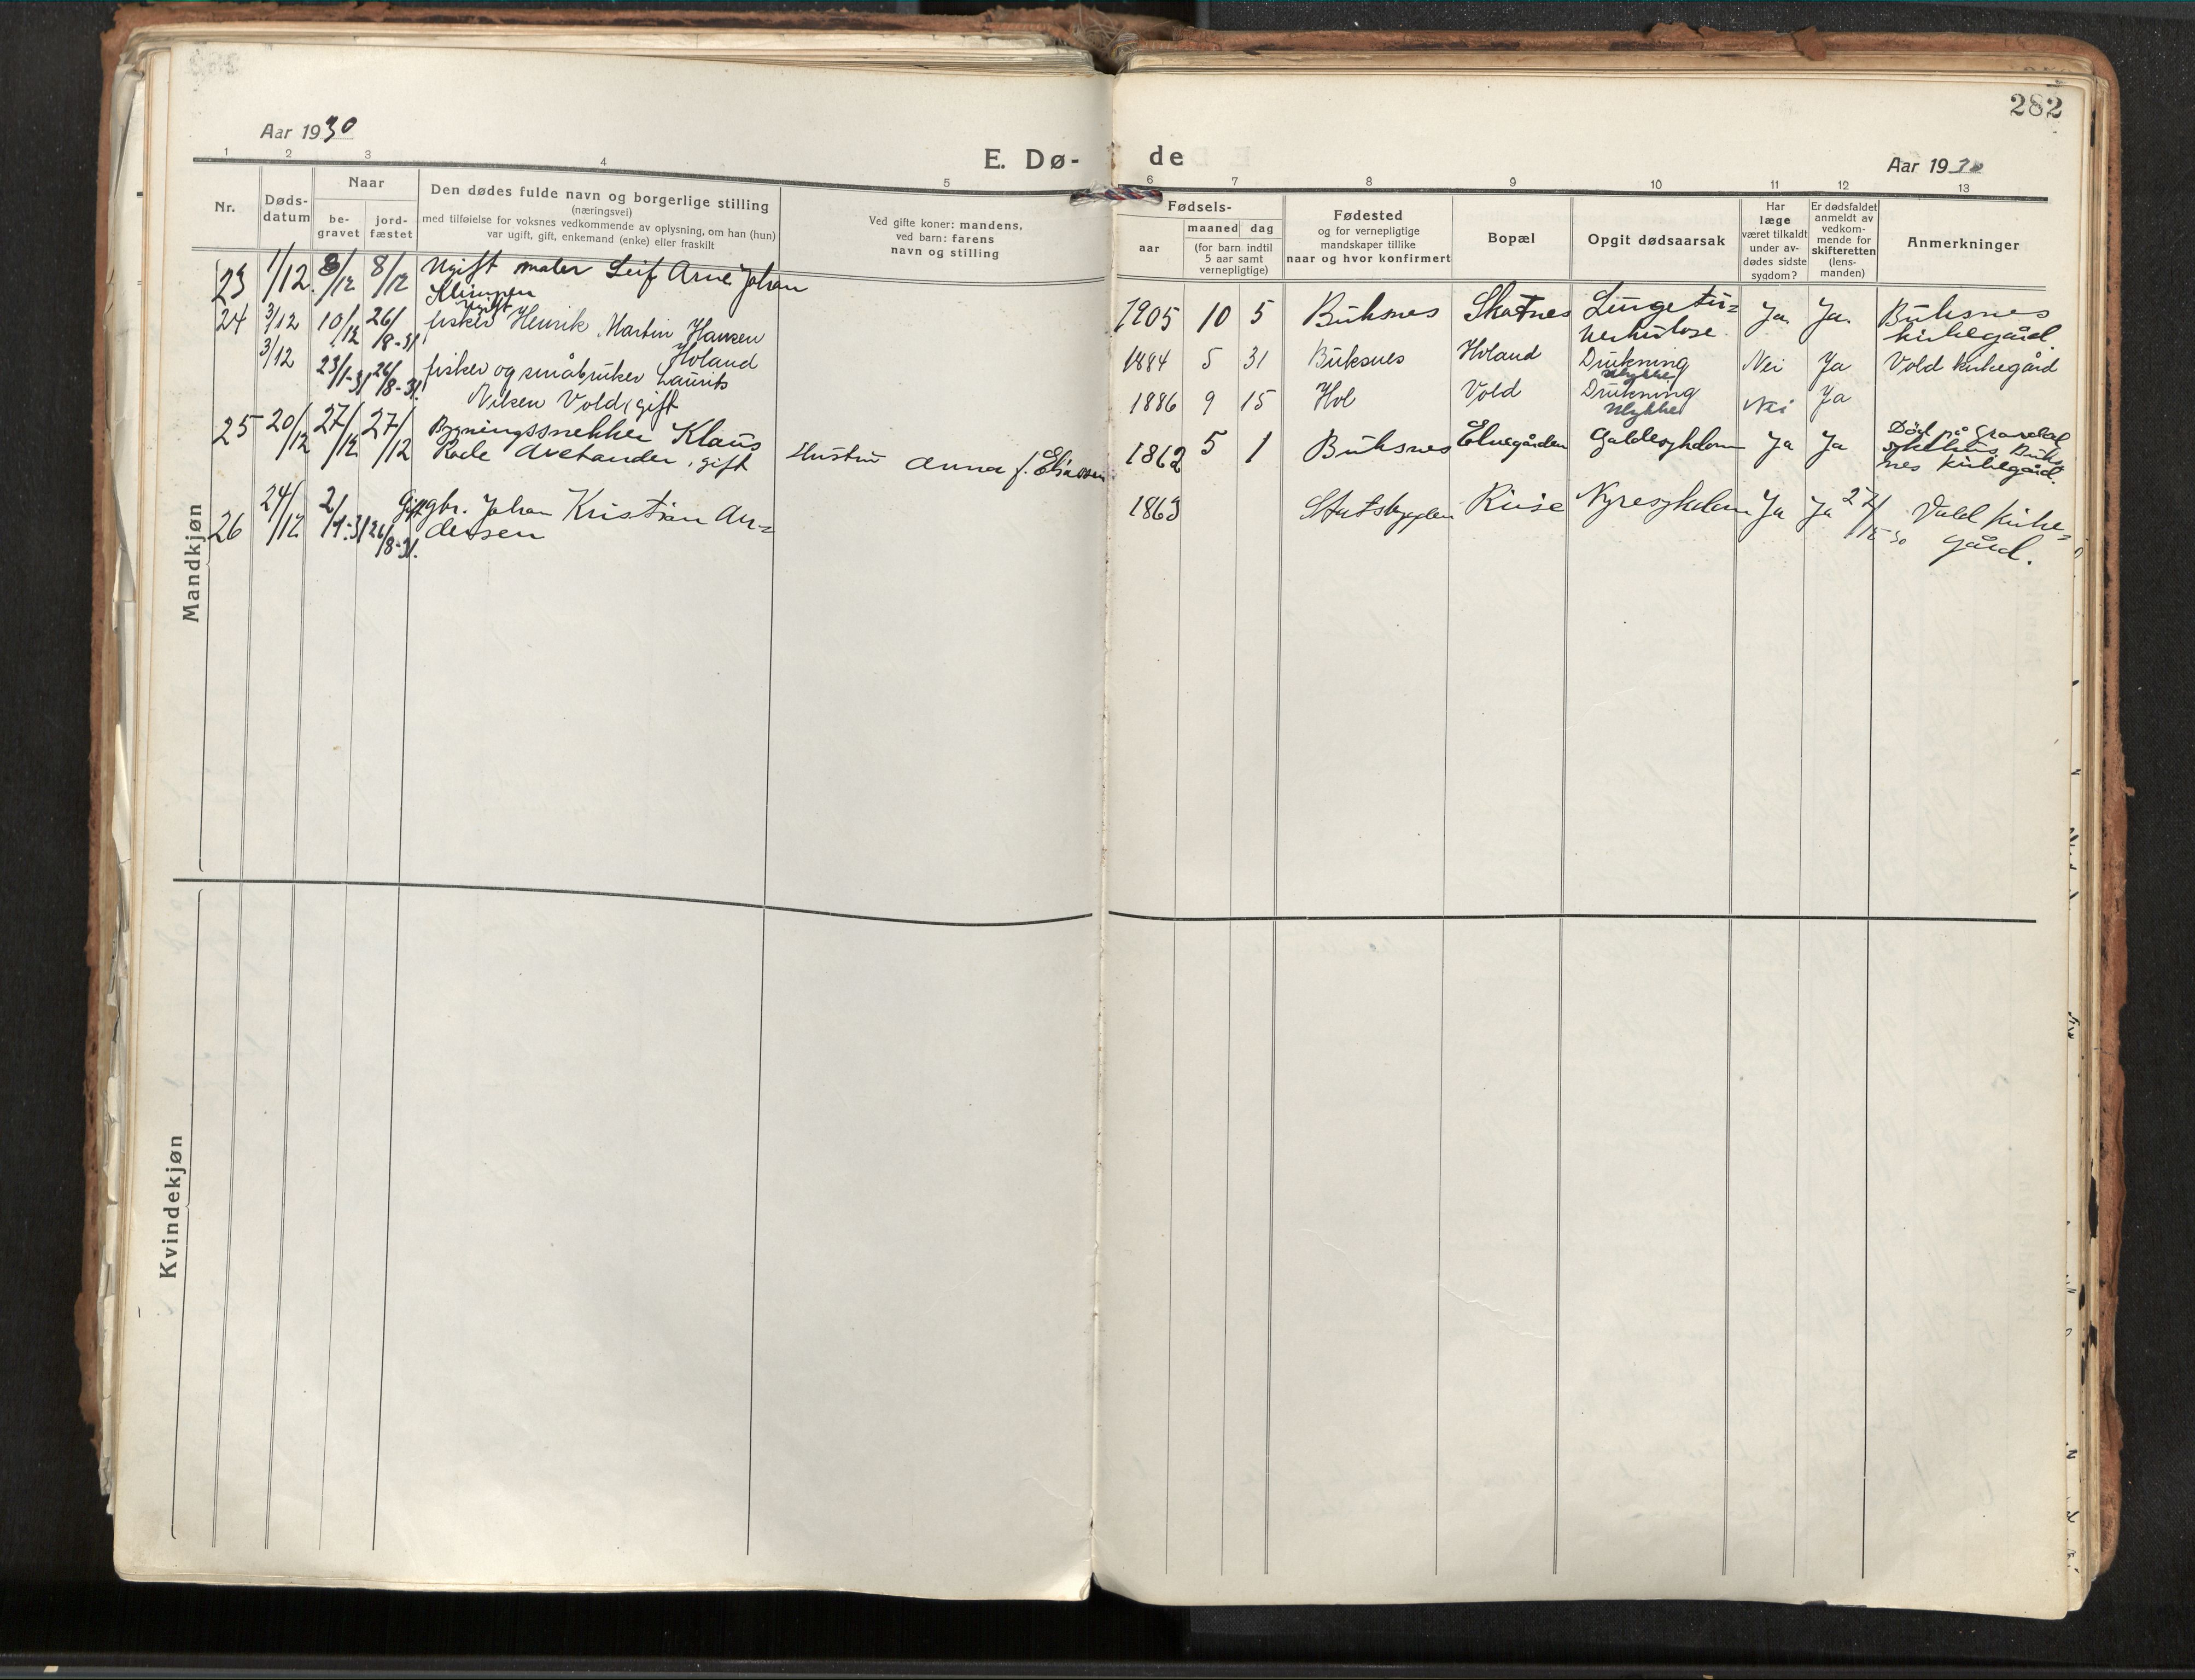 282
Aar 1930
E. Dø-
de
Aar 1930
1 2 3 4 5 6 7 8 9 10 11 12 13
Nr.
Døds-
datum
Naar
be-
gravet
jord-
fæstet
Den dødes fulde navn og borgerlige stilling
(næringsvei)
med tilføielse for voksnes vedkommende av oplysning, om han (hun)
var ugift, gift, enkemand (enke) eller fraskilt
Ved gifte koner: mandens,
ved barn: farens
navn og stilling
Fødsels-
aar
maaned
dag
(for barn indtil
5 aar samt
vernepligtige)
Fødested
og for vernepligtige
mandskaper tillike
naar og hvor konfirmert
Bopæl
Opgit dødsaarsak
Har
læge
været tilkaldt
under av-
dødes sidste
sygdom?
Er dødsfaldet
anmeldt av
vedkom-
mende for
skifteretten
(lens-
manden)
Anmerkninger
Mandkjøn
23 1/12 8/12 8/12 Ugift maler Leif Arne Johan
1905 10 5 Buksnes Skotnes Lungetu=
berkulose Ja Ja. Buksnes
kirkegård.
24 3/12 10/12 26/8-31 Ugift
fisker Henrik Martin Hansen
Holand
1884 5 31 Buksnes Holand Drukning
ulykke Nei Ja Vold kirkegård
3/12 23/1-31 26/8-31 fisker og småbruker Laurits
Nilsen Vold, gift
1886 9 15 Hol Vold Drukning
ulykke Nei Ja
25 20/12 27/12 27/12 Bygningssnekker Klaus
gift Hustru Anna f. Eliassen
1862 5 1 Buksnes Elvegården Galdesykdom Ja Ja Död på Gravdal
sykehus, Buks
nes kirkegård.
26 24/12 2/1-31 26/8-31. Gift gbr. Johan Kristian An=
dersen
1863 Stutsbygden Riise Nyresykdom Ja Ja 27/12-30 Vold kirke=
gård.
Kvindekjøn